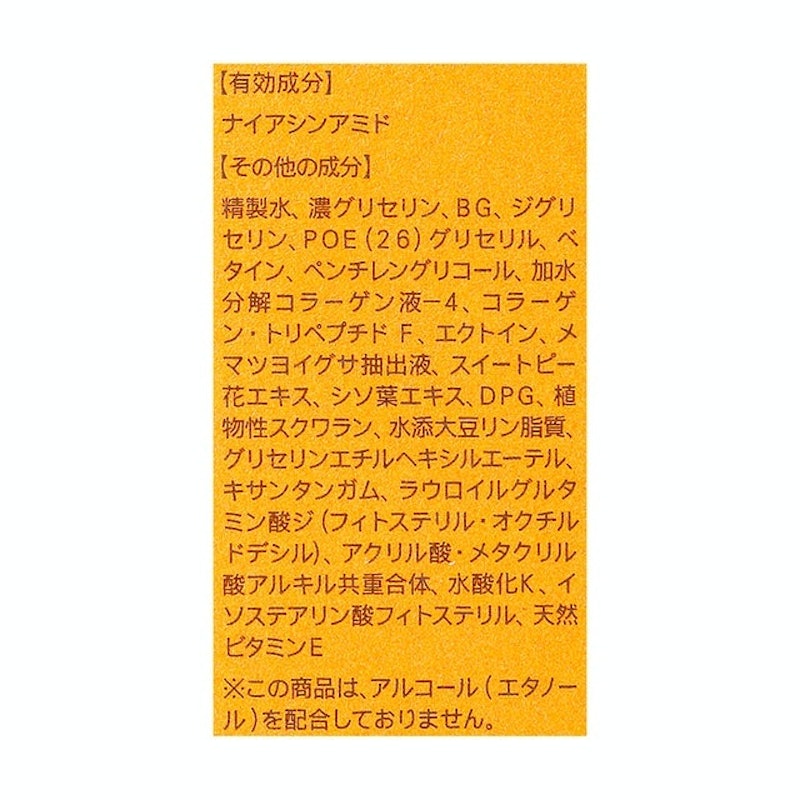 【有効成分】
ナイアシンアミド
【その他の成分】
精製水、濃グリセリン、BG、ジグリ
セリン、POE(26)グリセリル、ベ
タイン、ペンチレングリコール、加水
分解コラーゲン液－4、コラーゲ
ン・トリペプチド F、エクトイン、メ
マツヨイグサ抽出液、スイートピー
花エキス、シソ葉エキス、DPG、植
物性スクワラン、水添大豆リン脂質、
グリセリンエチルヘキシルエーテル、
キサンタンガム、ラウロイルグルタ
ミン酸ジ(フィトステリル・オクチル
ドデシル)、アクリル酸・メタクリル
酸アルキル共重合体、水酸化K、イ
ソステアリン酸フィトステリル、天然
ビタミンE
※この商品は、アルコール(エタノー
ル)を配合しておりません。